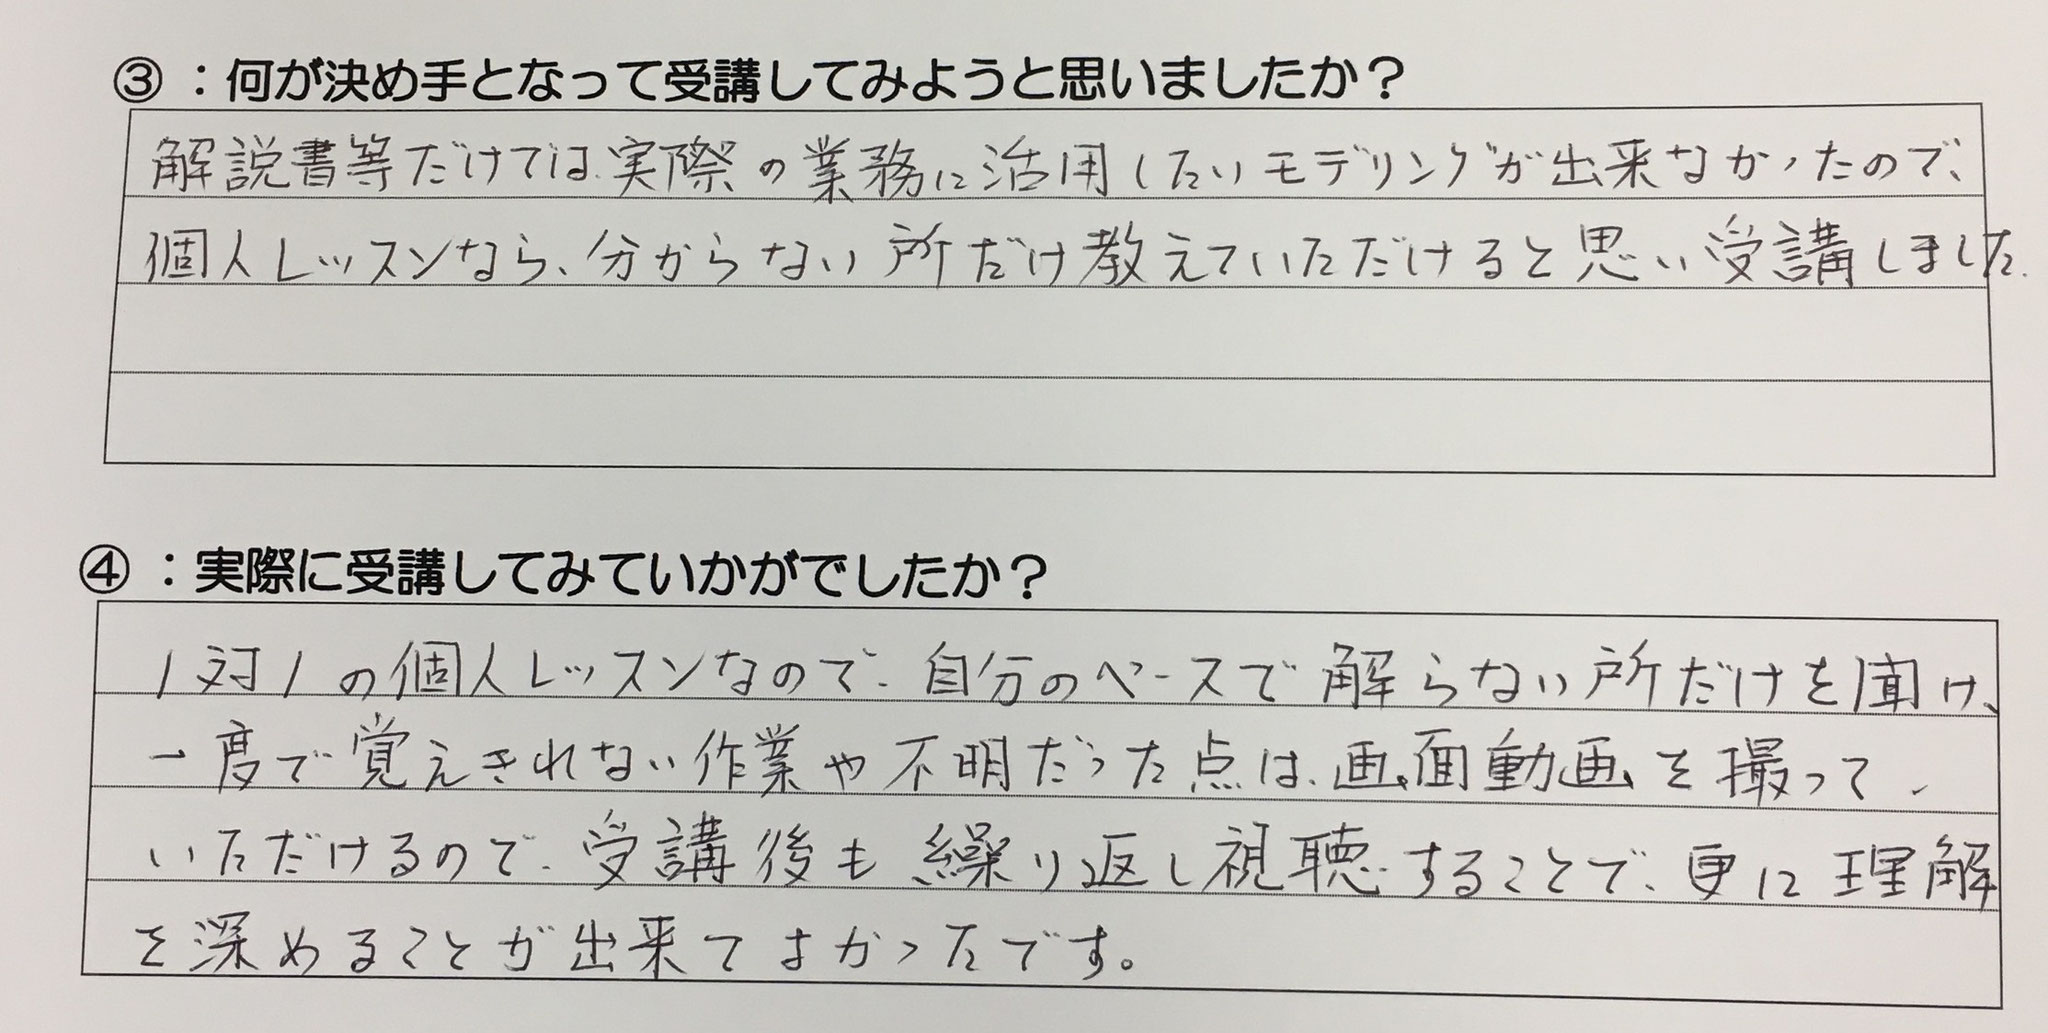 ③：何が決め手となって受講してみようと思いましたか？
解説書等だけでは、実際の業務に活用したいモデリングが出来なかったので、
個人レッスンなら、分からない所だけ教えていただけると思い受講しました.
④：実際に受講してみていかがでしたか？
1対1の個人レッスンなので、自分のペースで解らない所だけを聞け、
一度で覚えきれない作業や不明だった点は、画面動画を撮って
いただけるので、受講後も繰り返し視聴することで、更に理解
を深めることが出来てよかったです。